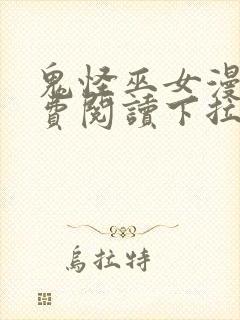 鬼怪巫女漫
費閱讀下拉
烏拉特